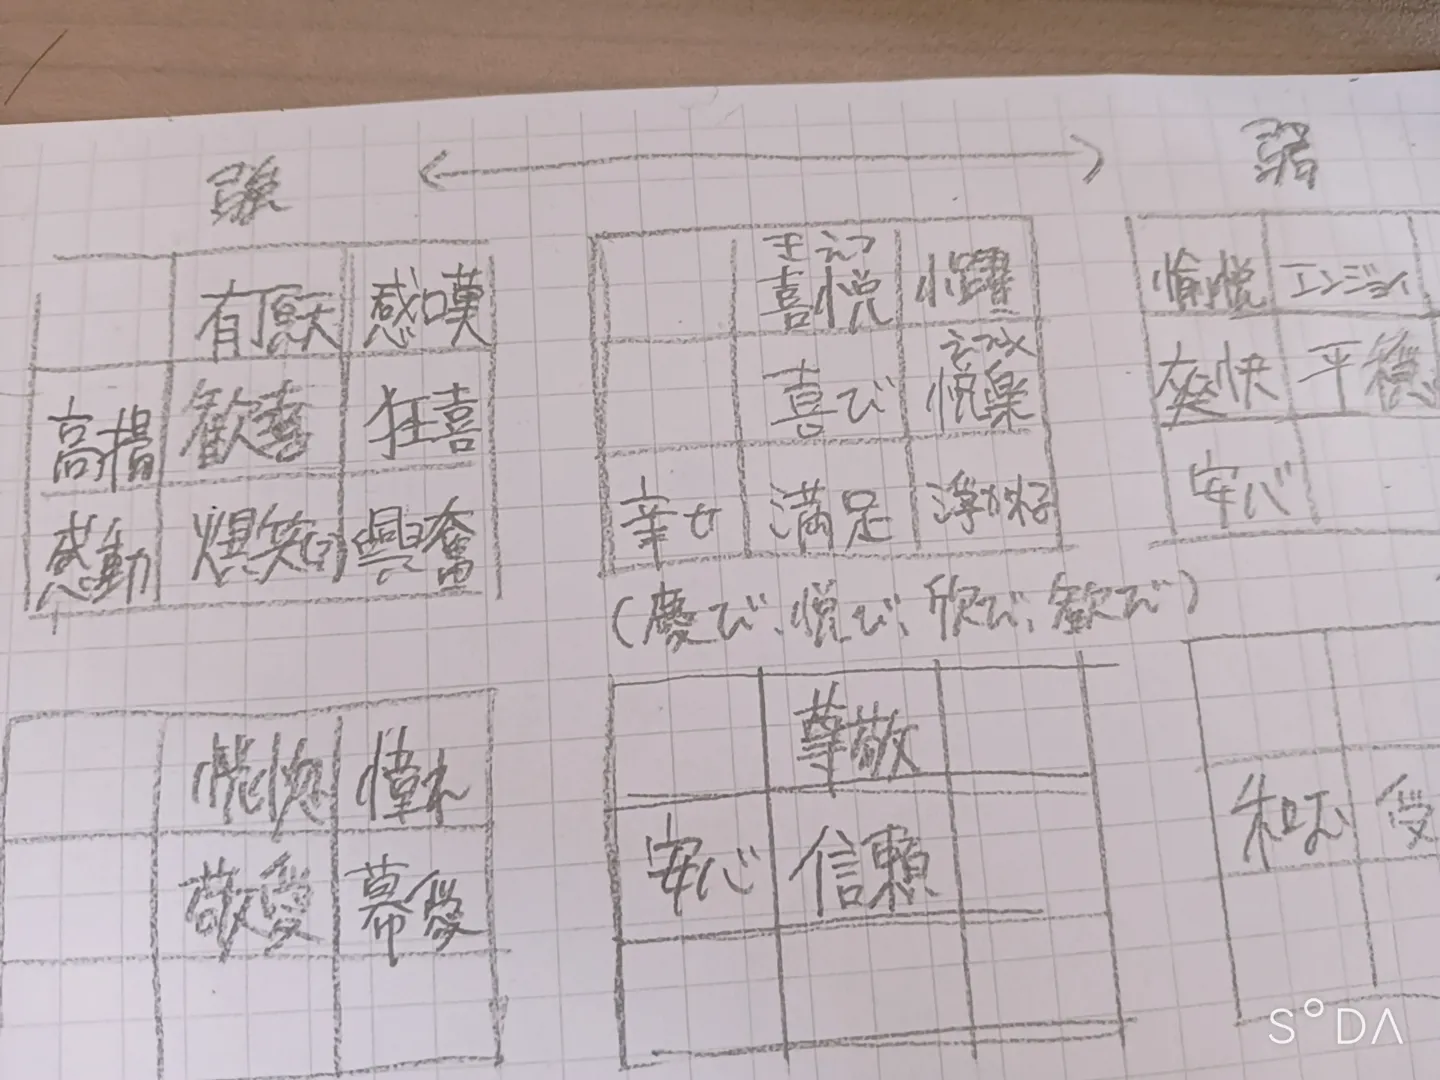 強 弱
有頂天 感嘆
高揚 歓喜 狂喜
感動 爆笑(的) 興奮
きえつ
喜悦
愉悦 エンジョイ
喜び 悦楽
爽快 平穏
幸せ 満足 浮かれ
安心
(慶び、悦び、欣び、歓び)
恍惚 憧れ
敬愛 慕愛
尊敬
安心 信頼
SODA